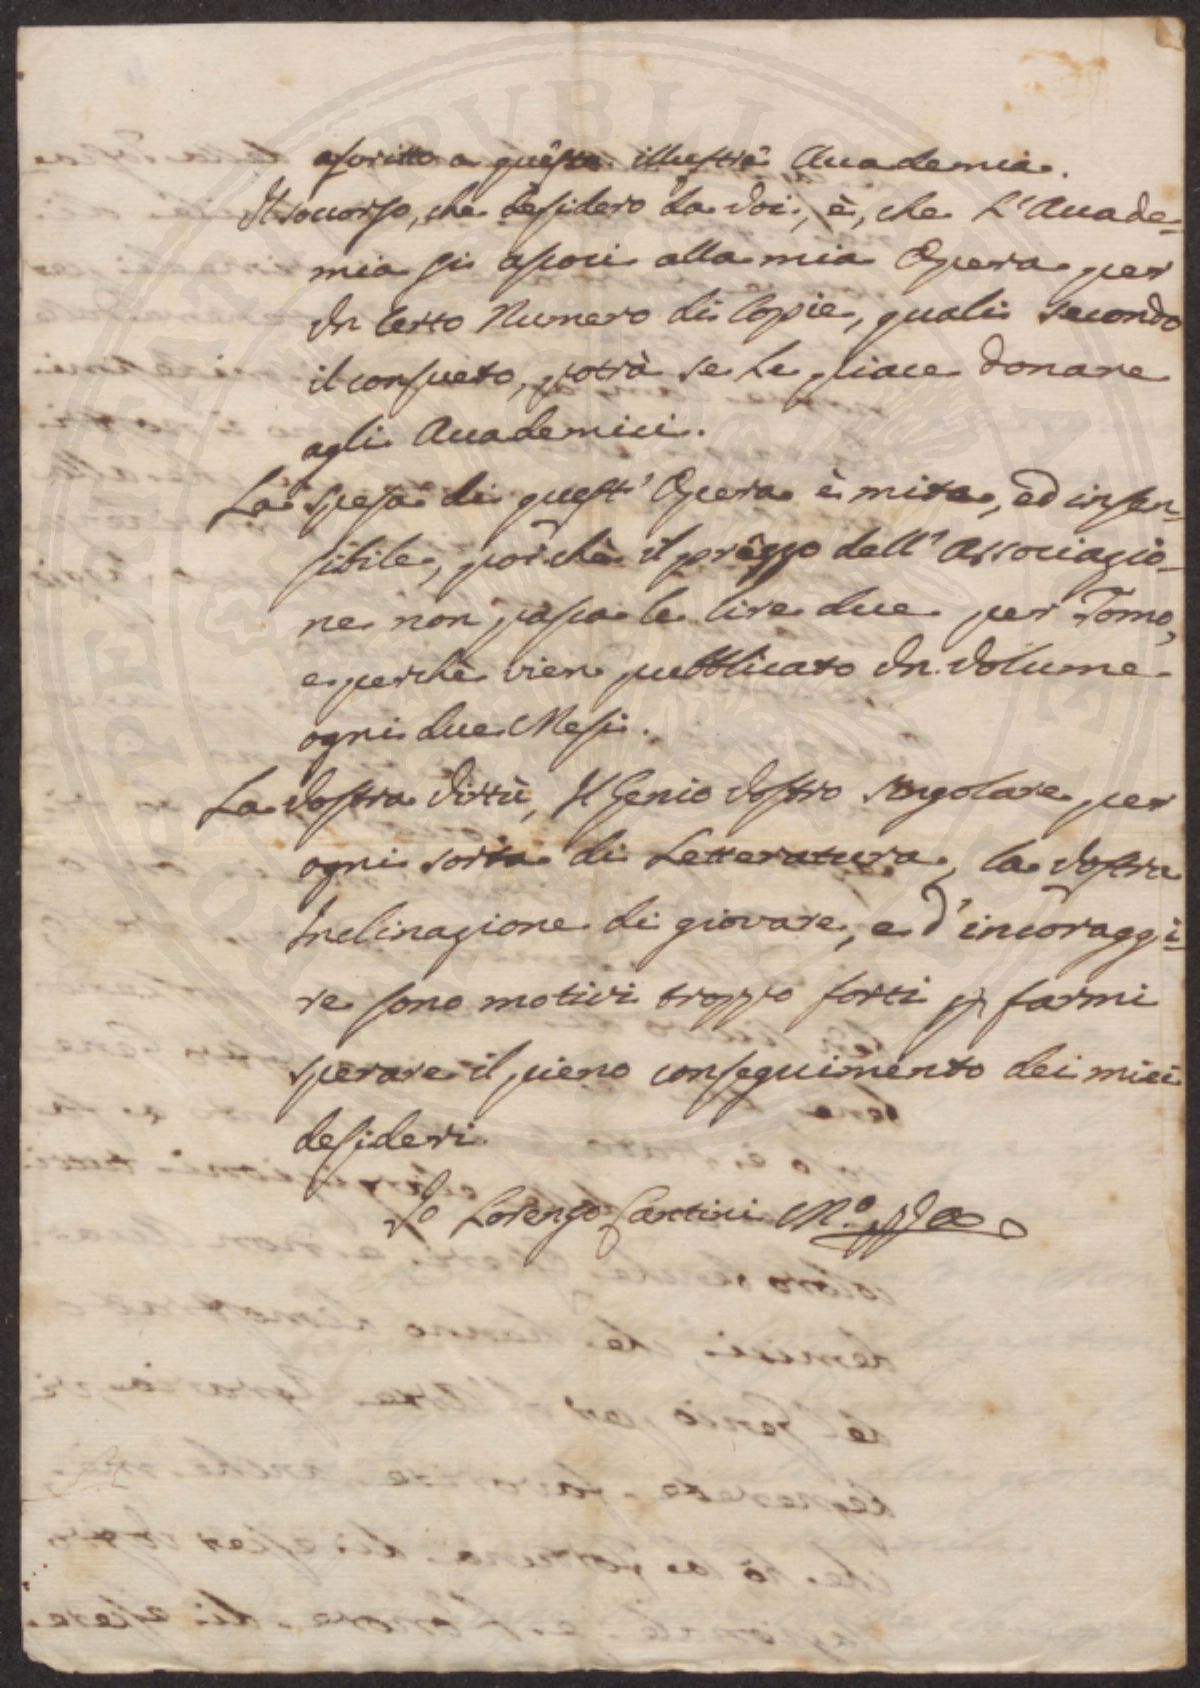 ascritto a questa illustre Accademia.
Il soccorso, che desidero da Voi, è, che L'Accade-
mia si associ alla mia Opera per
Un certo Numero di Copie, quali secondo
il consueto, potrà se Le piace donare
agli Accademici.
La spesa di quest' Opera è mite, ed insen-
sibile, poichè il prezzo dell' Associazio-
ne non passa le lire due per Tomo,
e perchè vien pubblicato Un Volume
ogni due Mesi.
La Vostra Virtù, Il Genio Vostro singolare per
ogni sorta di Letteratura, la Vostra
Inclinazione di giovare, e d'incoraggi-
re sono motivi troppo forti p farmi
sperare il pieno conseguimento dei miei
desideri.
Io Lorenzo Cantini